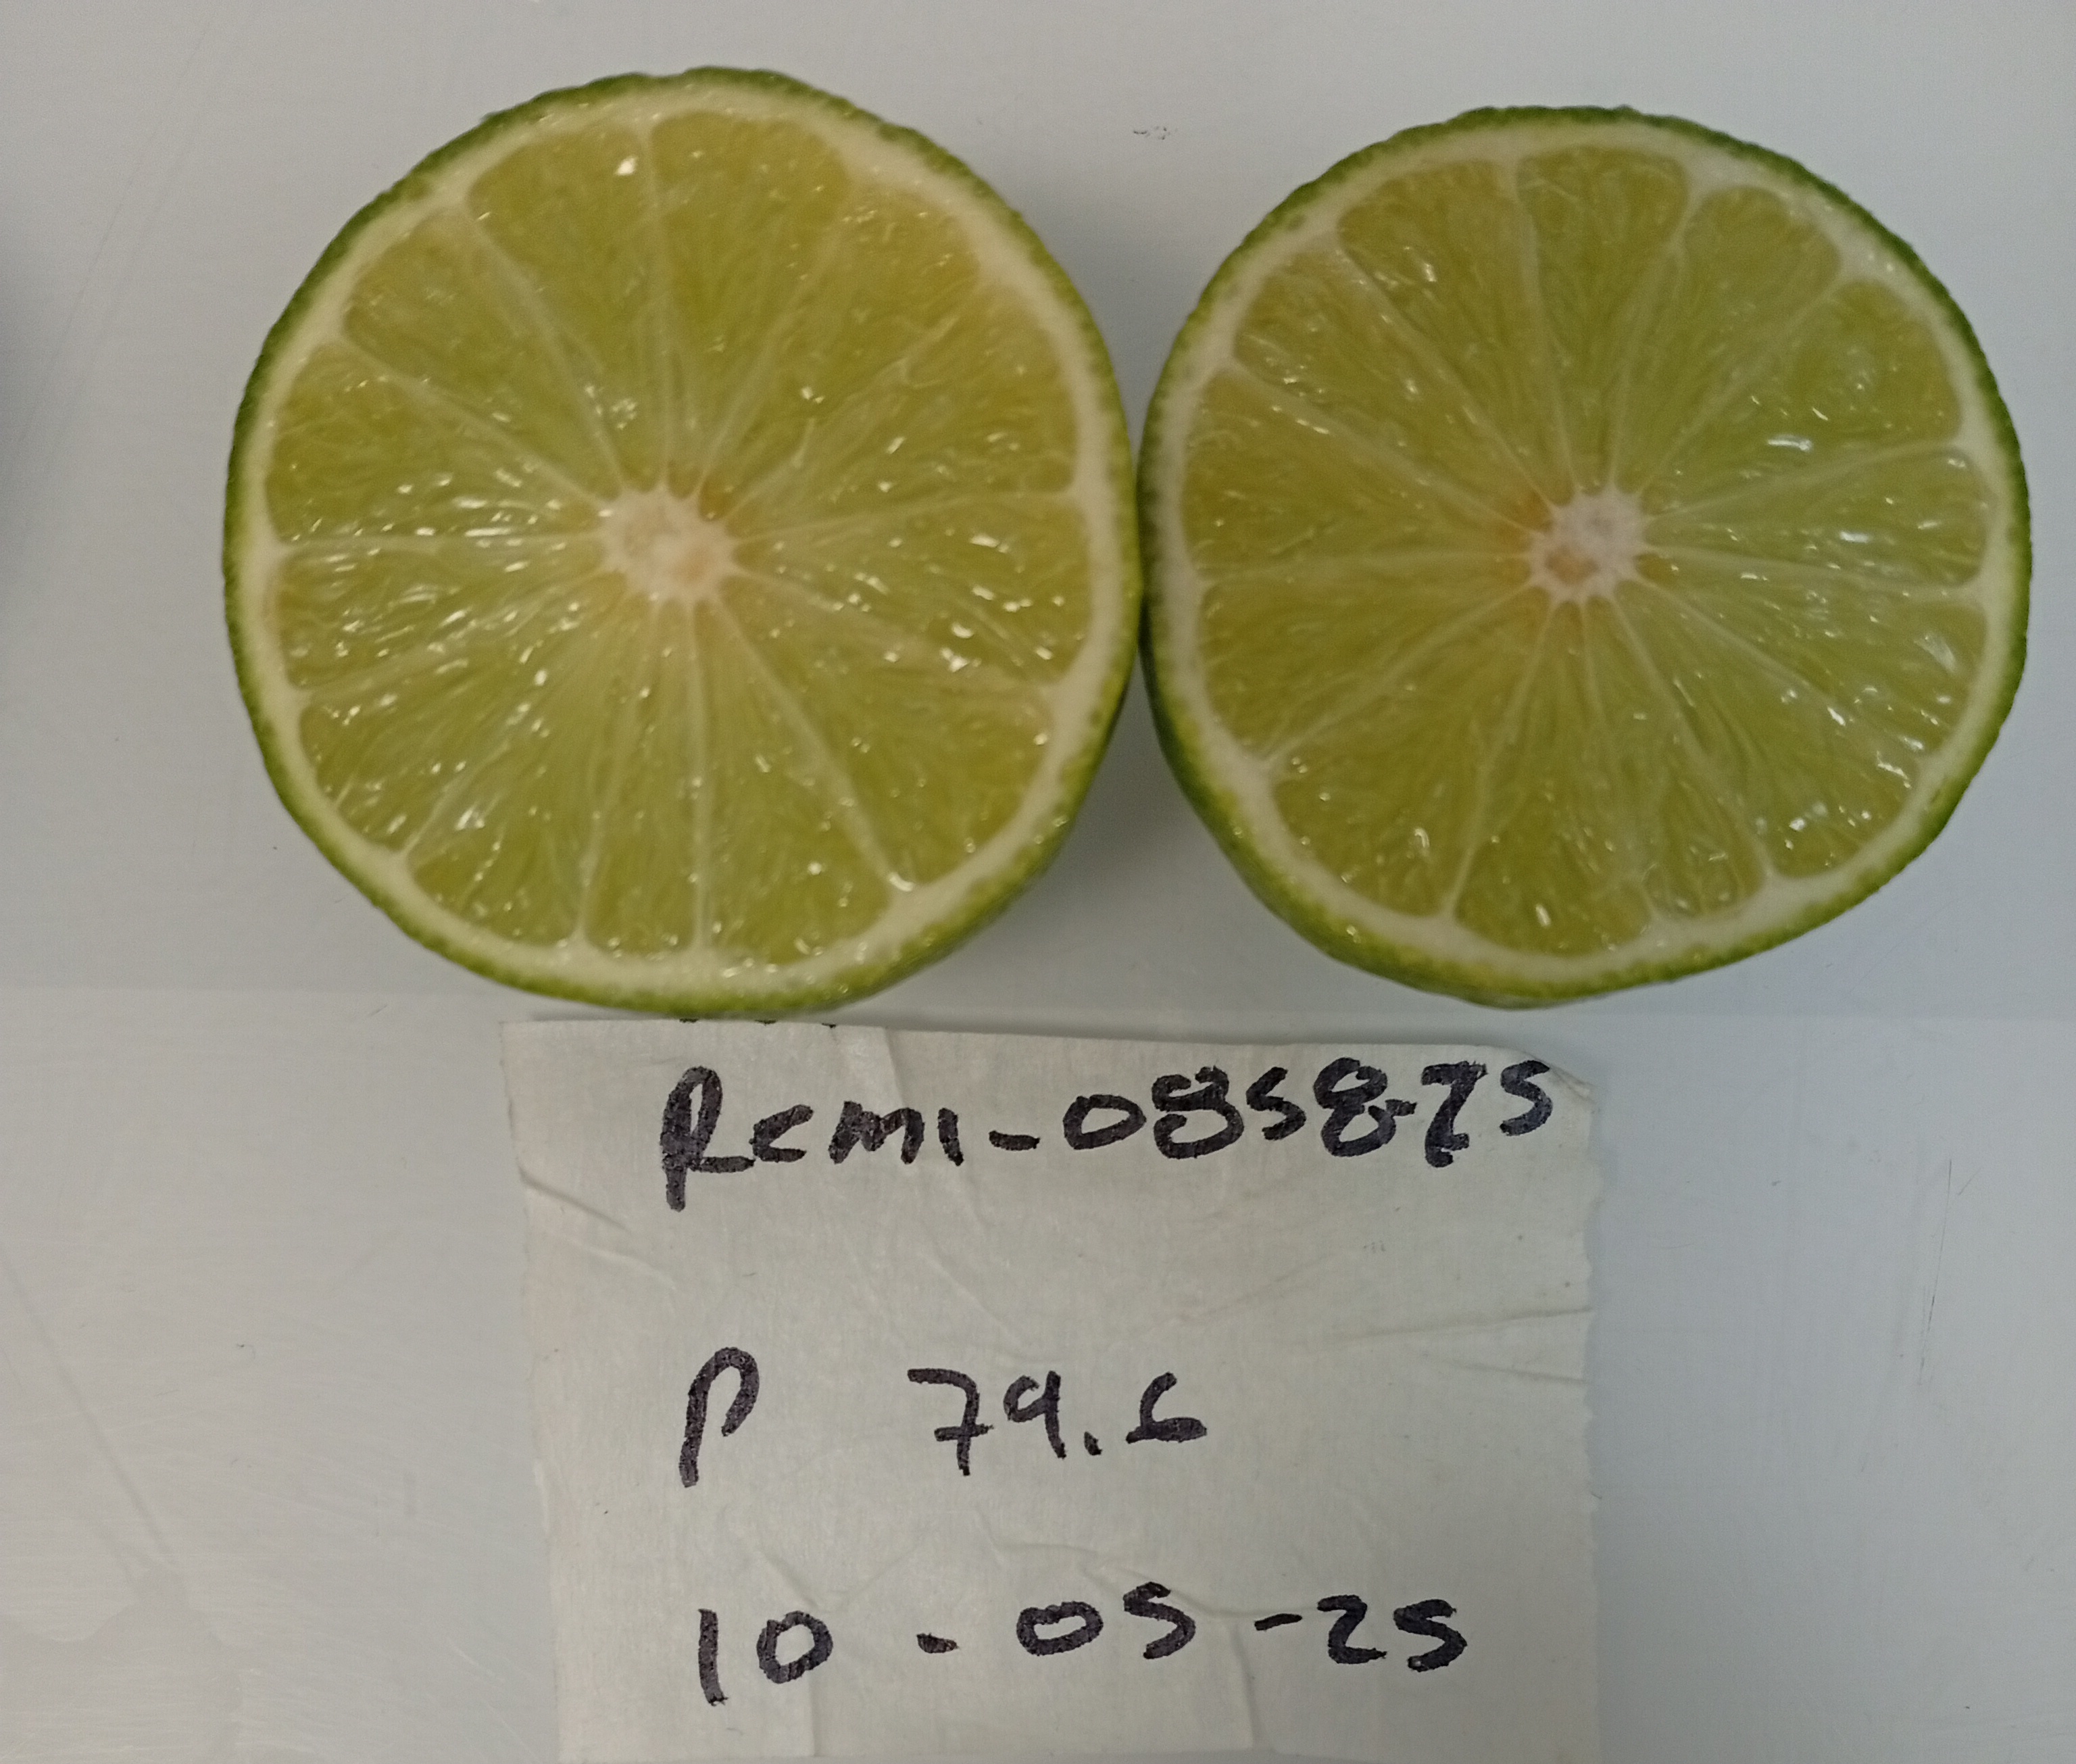 Remi-0858-25
P 79.6
10-05-25